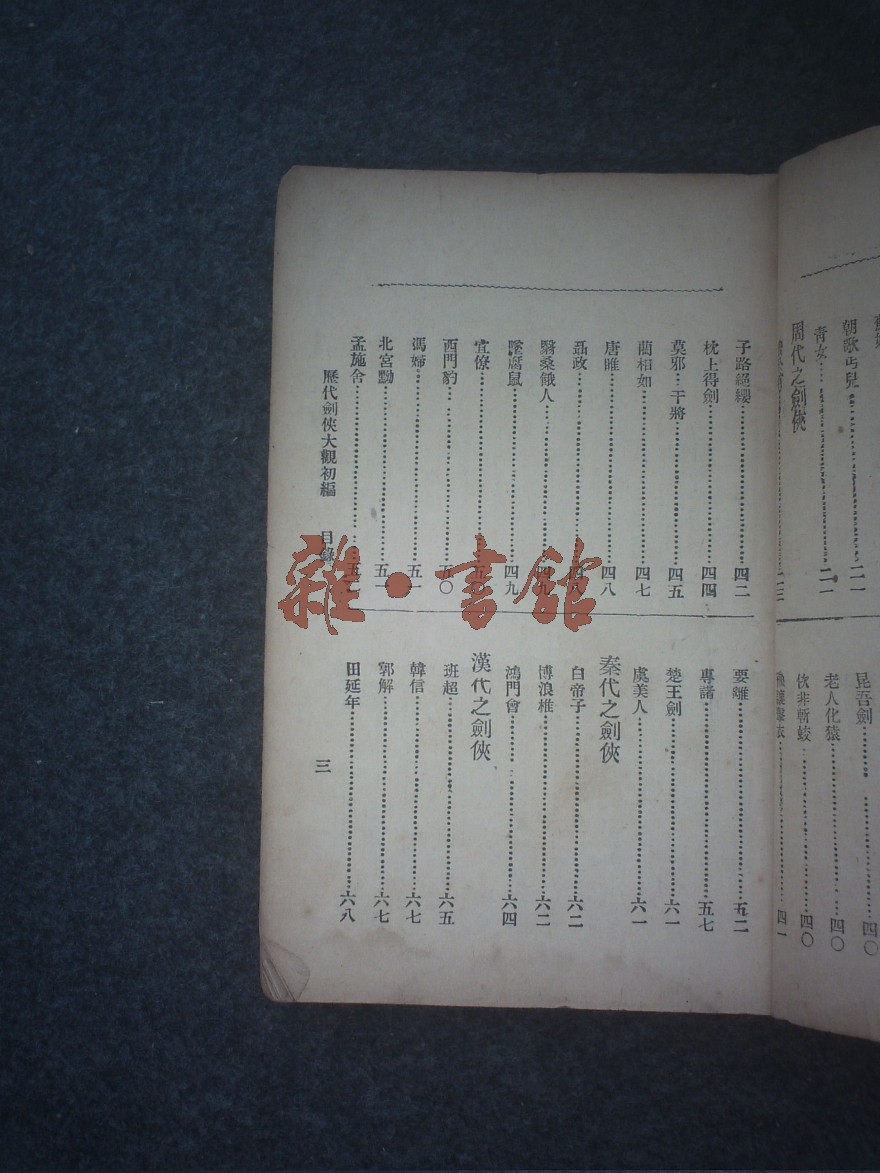 朝歌丐兒……二一
青女……二一
周代之劍俠
昆吾劍……四〇
老人化猿……四〇
佽非斬蛟……四〇
擊衣……四一
子路絕纓……四二
枕上得劍……四四
莫邪…干將……四五
藺相如……四七
唐雎……四八
聶政……四八
翳桑餓人……四九
墜腐鼠……四九
宜僚……五〇
西門豹……五〇
馮婦……五一
北宮黝……五一
孟施舍……五
要離……五二
專諸……五七
楚王劍……六一
虞美人……六一
秦代之劍俠
白帝子……六二
博浪椎……六二
鴻門會……六四
漢代之劍俠
班超……六五
韓信……六七
郭解……六七
田延年……六八
歷代劍俠大觀初編 目錄 三
雜·書館